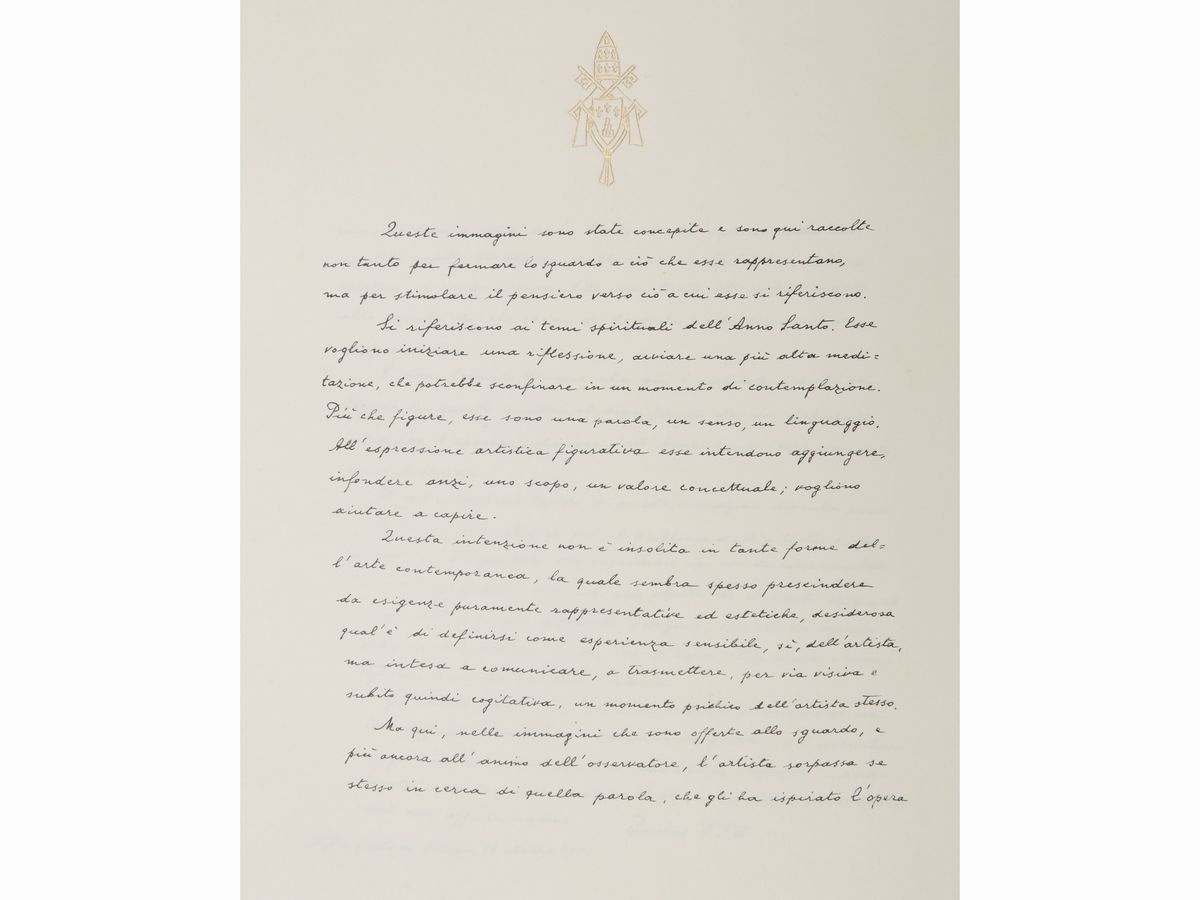 Queste immagini sono state concepite e sono qui raccolte
non tanto per fermare lo sguardo a ciò che esse rappresentano,
ma per stimolare il pensiero verso ciò a cui esse si riferiscono.
Si riferiscono ai temi spirituali dell'Anno Santo. Esse
vogliono iniziare una riflessione, avviare una più alta medi=
tazione, che potrebbe sconfinare in un momento di contemplazione.
Più che figure, esse sono una parola, un senso, un linguaggio.
All'espressione artistica figurativa esse intendono aggiungere,
infondere anzi, uno scopo, un valore concettuale; vogliono
aiutare a capire.
Questa intenzione non è insolita in tante forme del=
l'arte contemporanea, la quale sembra spesso prescindere
da esigenze puramente rappresentative ed estetiche, desiderosa
qual'è di definirsi come esperienza sensibile, sì, dell'artista,
ma intesa a comunicare, a trasmettere, per via visiva e
subito quindi cogitativa, un momento psichico dell'artista stesso.
Ma qui, nelle immagini che sono offerte allo sguardo, e
più ancora all'animo dell'osservatore, l'artista sorpassa se
stesso in cerca di quella parola, che gli ha ispirato l'opera